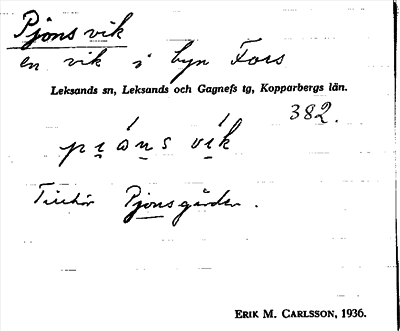 Pjonsvik
en vik i byn Fors
Leksands sn, Leksands och Gagnefs tg, Kopparbergs län.
382.
vik
Tillhör Pjonsgården.
ERIK M. CARLSSON, 1936.